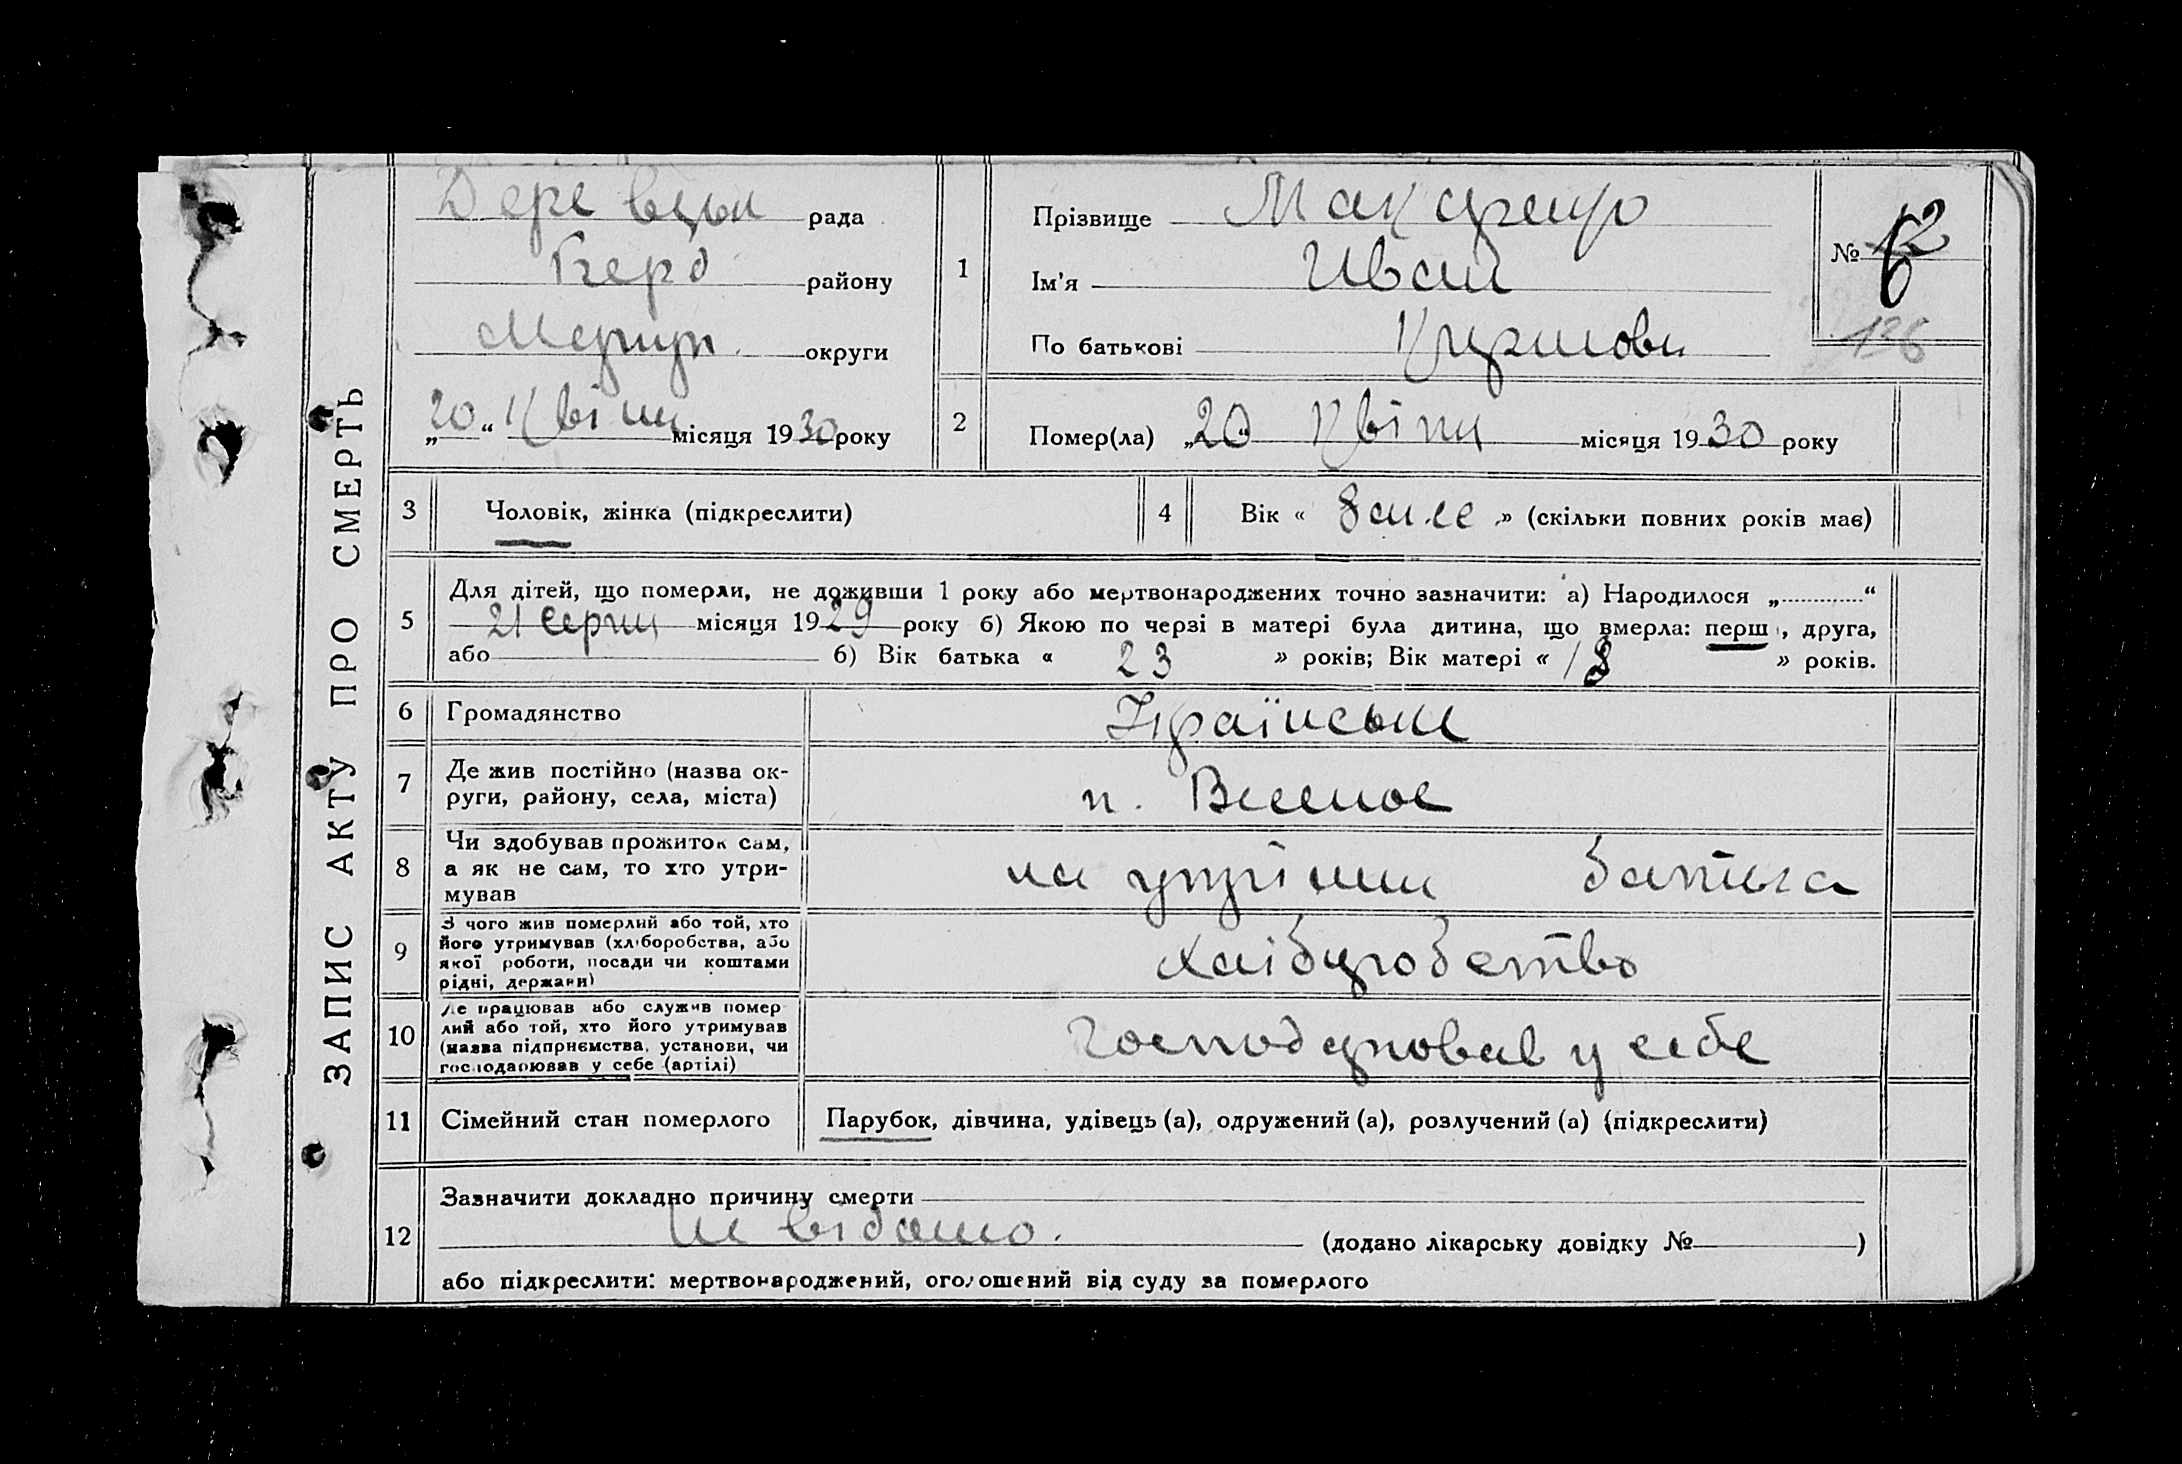 ЗАПИС АКТУ ПРО СМЕРТЬ
рада
району
округи
„20“ місяця 1930 року
1
Прізвище Макаренко
Ім'я Иван
По батькові
№ 12 6
126
2
Помер(ла) „20“ Квітн місяця 1930 року
3
Чоловік, жінка (підкреслити)
4
Вік « 8 » (скільки повних років має)
5
Для дітей, що померли, не доживши 1 року або мертвонароджених точно зазначити: а) Народилося „............“
21 серпн місяця 1929 року б) Якою по черзі в матері була дитина, що вмерла: перш , друга,
або б) Вік батька « 23 » років; Вік матері « 18 » років.
6
Громадянство Українське
7
Де жив постійно (назва ок-
руги, району, села, міста)
8
Чи здобував прожиток сам,
а як не сам, то хто утри-
мував
на батька
9
З чого жив померлий або той, хто
його утримував (хліборобства, або
якої роботи, посади чи коштами
рідні, держави)
10
Де працював або служив помер
лий або той, хто його утримував
(назва підприємства, установи, чи
господарював у себе (артілі)
Господаровав у себе
11
Сімейний стан померлого
Парубок, дівчина, удівець (а), одружений (а), розлучений (а) (підкреслити)
12
Зазначити докладно причину смерти
не відомо.
(додано лікарську довідку № )
або підкреслити: мертвонароджений, оголошений від суду за померлого